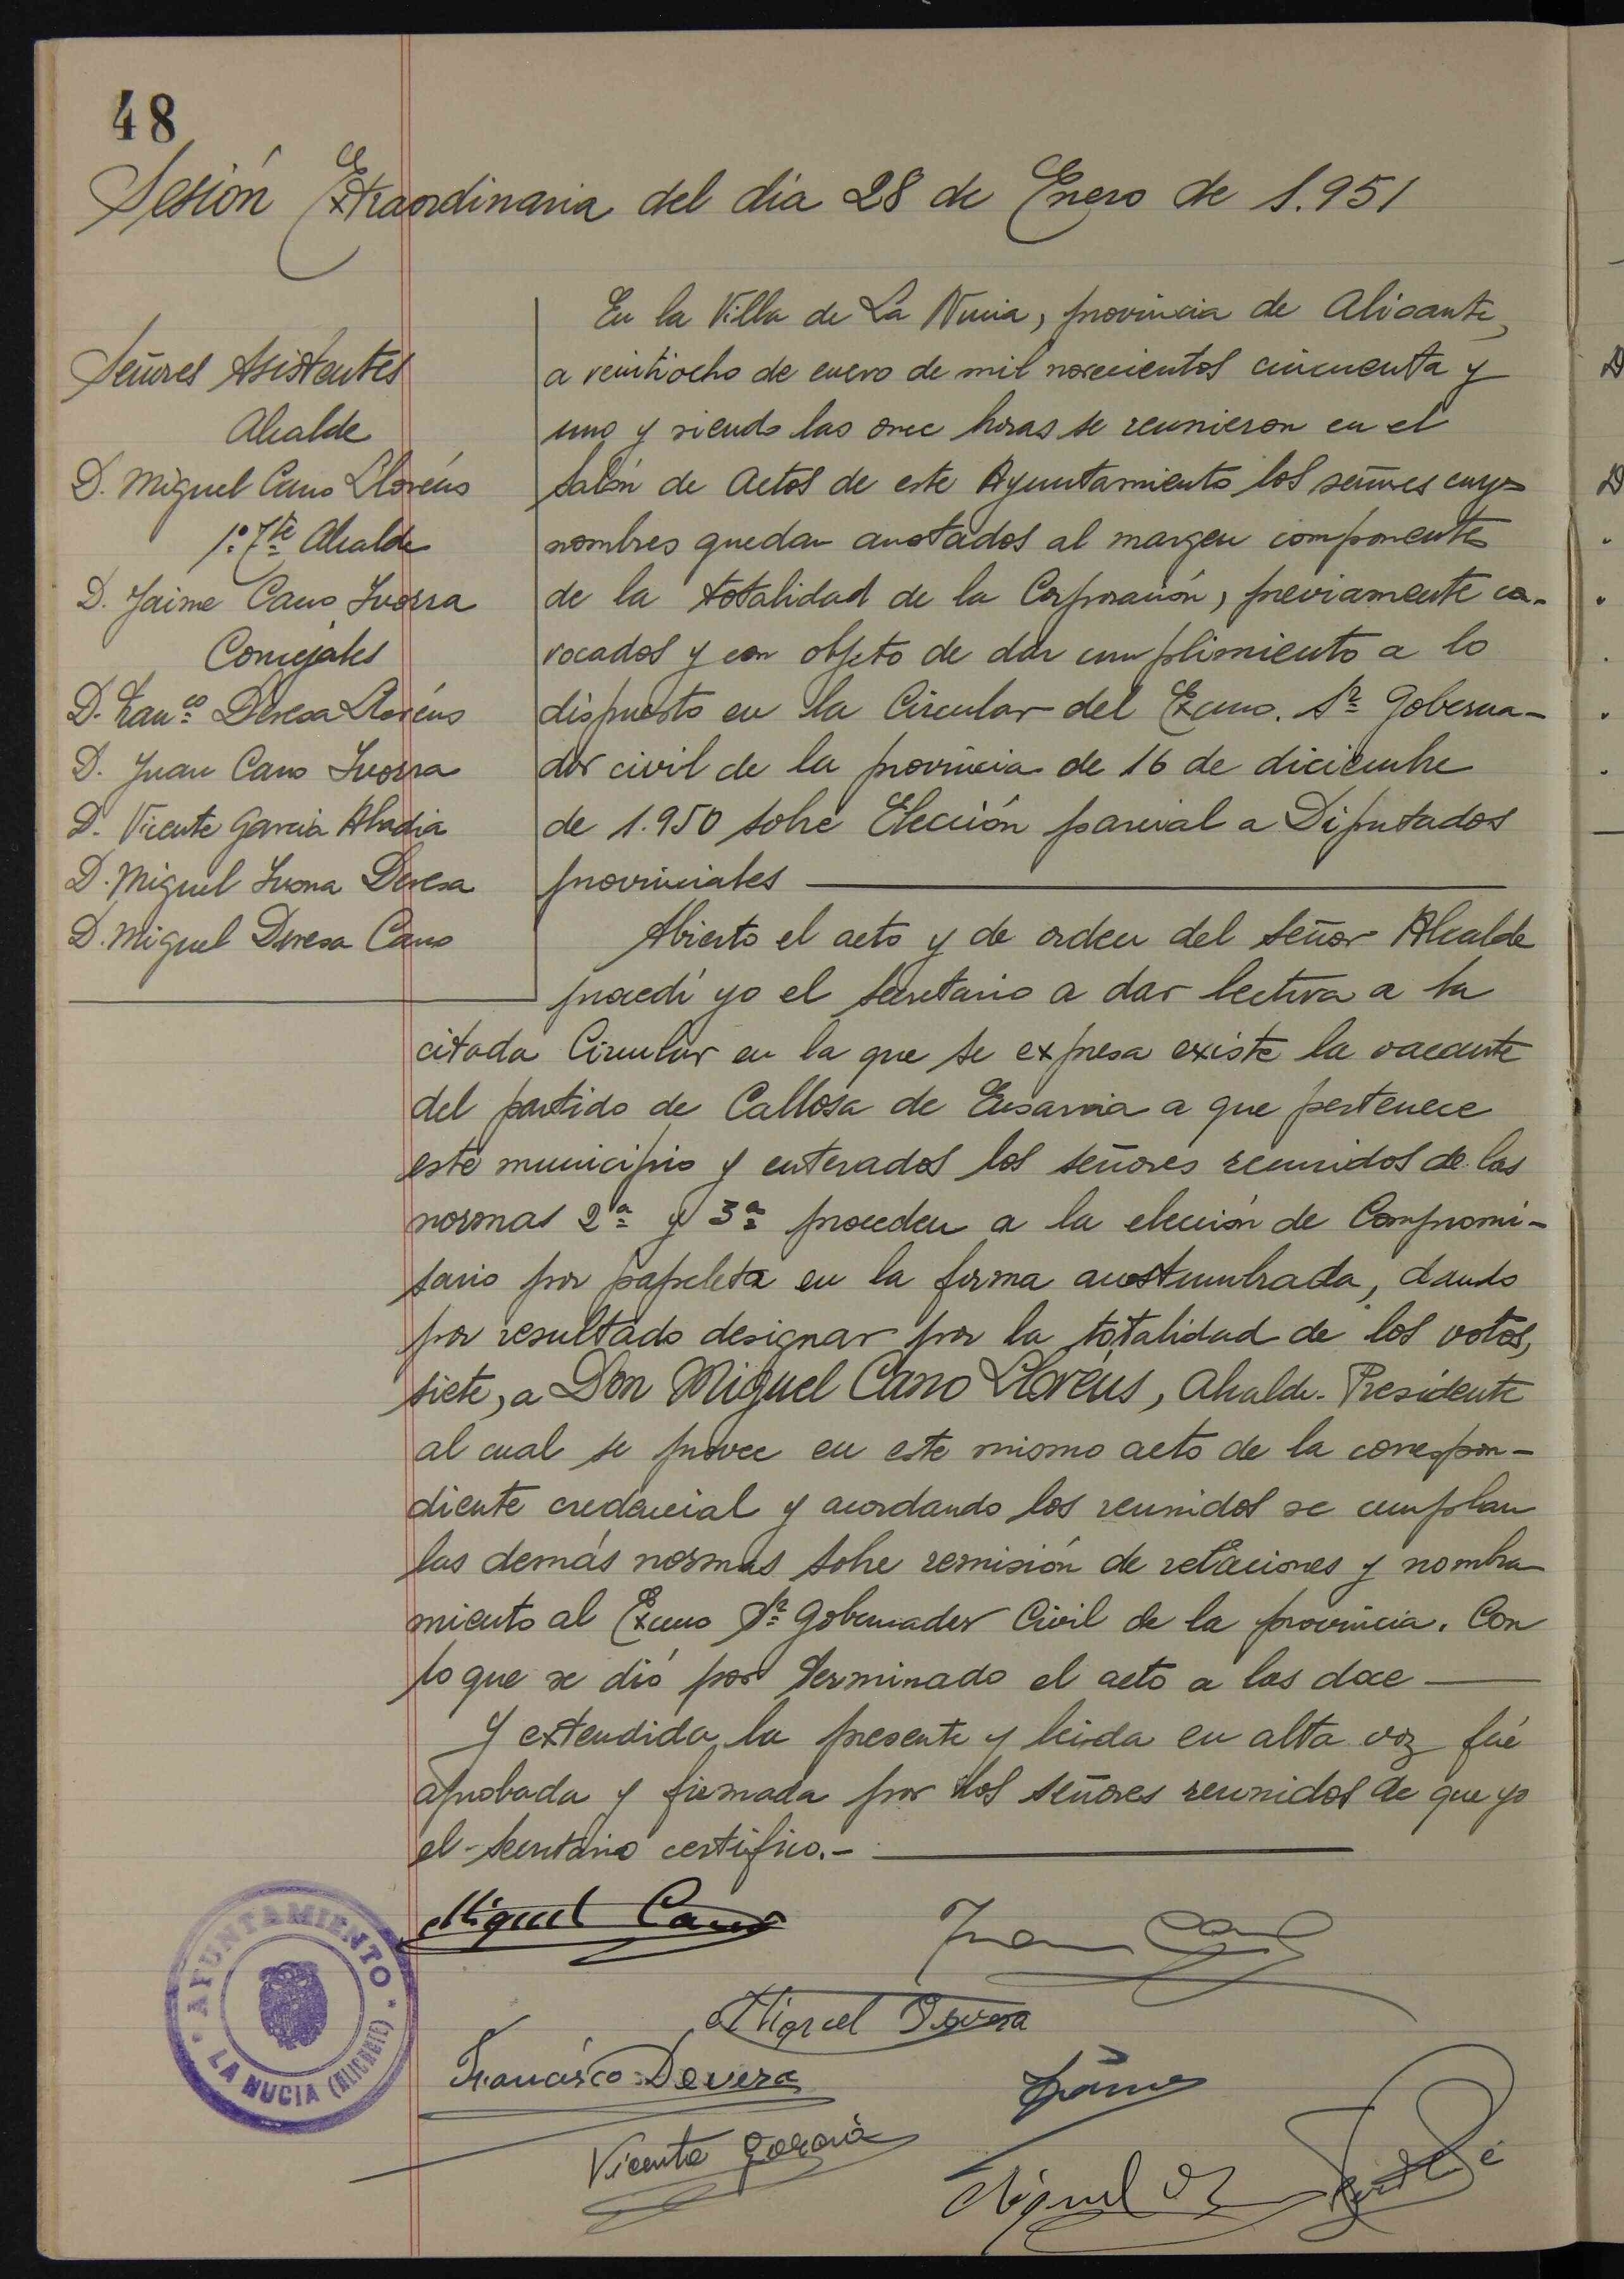 48
Sesión Extraordinaria del dia 28 de Enero de 1.951
Señores Asistentes
Alcalde
D. Miguel Cano Lloréns
1º Tte Alcalde
D. Jaime Cano Ivorra
Concejales
D. Franco Devesa Lloréns
D. Juan Cano Ivorra
D. Vicente Garcia Abadia
D. Miguel Ivorra Devesa
D. Miguel Devesa Cano
En la Villa de La Nucia, provincia de Alicante,
a veintiocho de enero de mil novecientos cincuenta y
uno y siendo las once horas se reunieron en el
salón de actos de este Ayuntamiento los señores cuyos
nombres quedan anotados al margen componentes
de la totalidad de la Corporación, previamente co-
vocados y con objeto de dar cumplimiento a lo
dispuesto en la Circular del Excmo. Sr Goberna-
dor civil de la provincia de 16 de diciembre
de 1.950 sobre Elección parcial a Diputados
provinciales
Abierto el acto y de orden del señor Alcalde
procedí yo el secretario a dar lectura a la
citada Circular en la que se expresa existe la vacante
del partido de Callosa de Ensarria a que pertenece
este municipio y enterados los señores reunidos de las
normas 2ª y 3ª proceden a la elección de Compromi-
sario por papeleta en la forma acostumbrada, dando
por resultado designar por la totalidad de los votos,
siete, a Don Miguel Cano Lloréns, Alcalde-Presidente
al cual se provee en este mismo acto de la correspon-
diente credencial y acordando los reunidos se cumplan
las demás normas sobre remisión de relaciones y nombra
miento al Excmo Sr Gobernador Civil de la provincia. Con
lo que se dió por terminado el acto a las doce
Y extendida la presente y leida en alta voz fué
aprobada y firmada por los señores reunidos de que yo
el secretario certifico.-
Miguel Cano
Juan Cano
Miguel Devesa
Francisco Devesa
Jaime
Vicente Garcia
Miguel
AYUNTAMIENTO
LA NUCIA (ALICANTE)